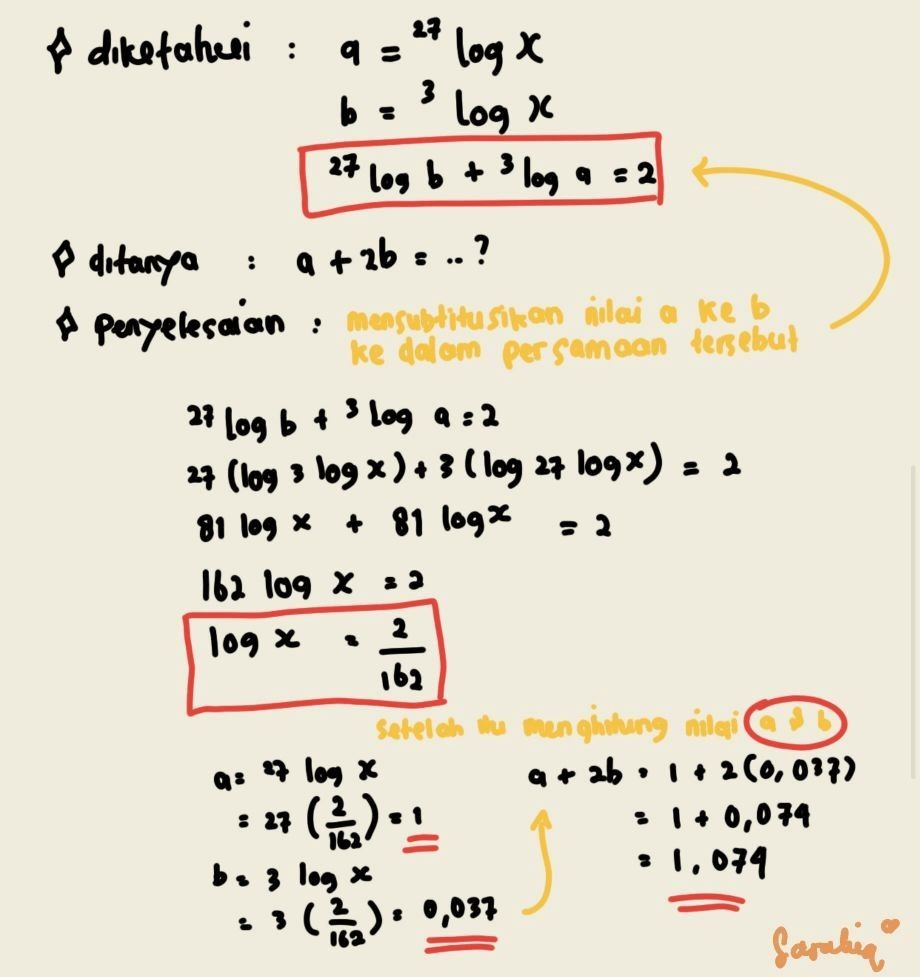 diketahui : a = ²⁷ log x
b = ³ log x
²⁷ log b + ³ log a = 2
ditanya : a + 2b = .. ?
Penyelesaian : mensubtitusikan nilai a ke b
ke dalam persamaan tersebut
²⁷ log b + ³ log a = 2
27 (log 3 log x) + 3 (log 27 log x) = 2
81 log x + 81 log x = 2
162 log x = 2
log x = 2/162
setelah itu menghitung nilai a & b
a = ²⁷ log x
= 27 (2/162) = 1
b = 3 log x
= 3 (2/162) = 0,037
a + 2b = 1 + 2(0,037)
= 1 + 0,074
= 1,074